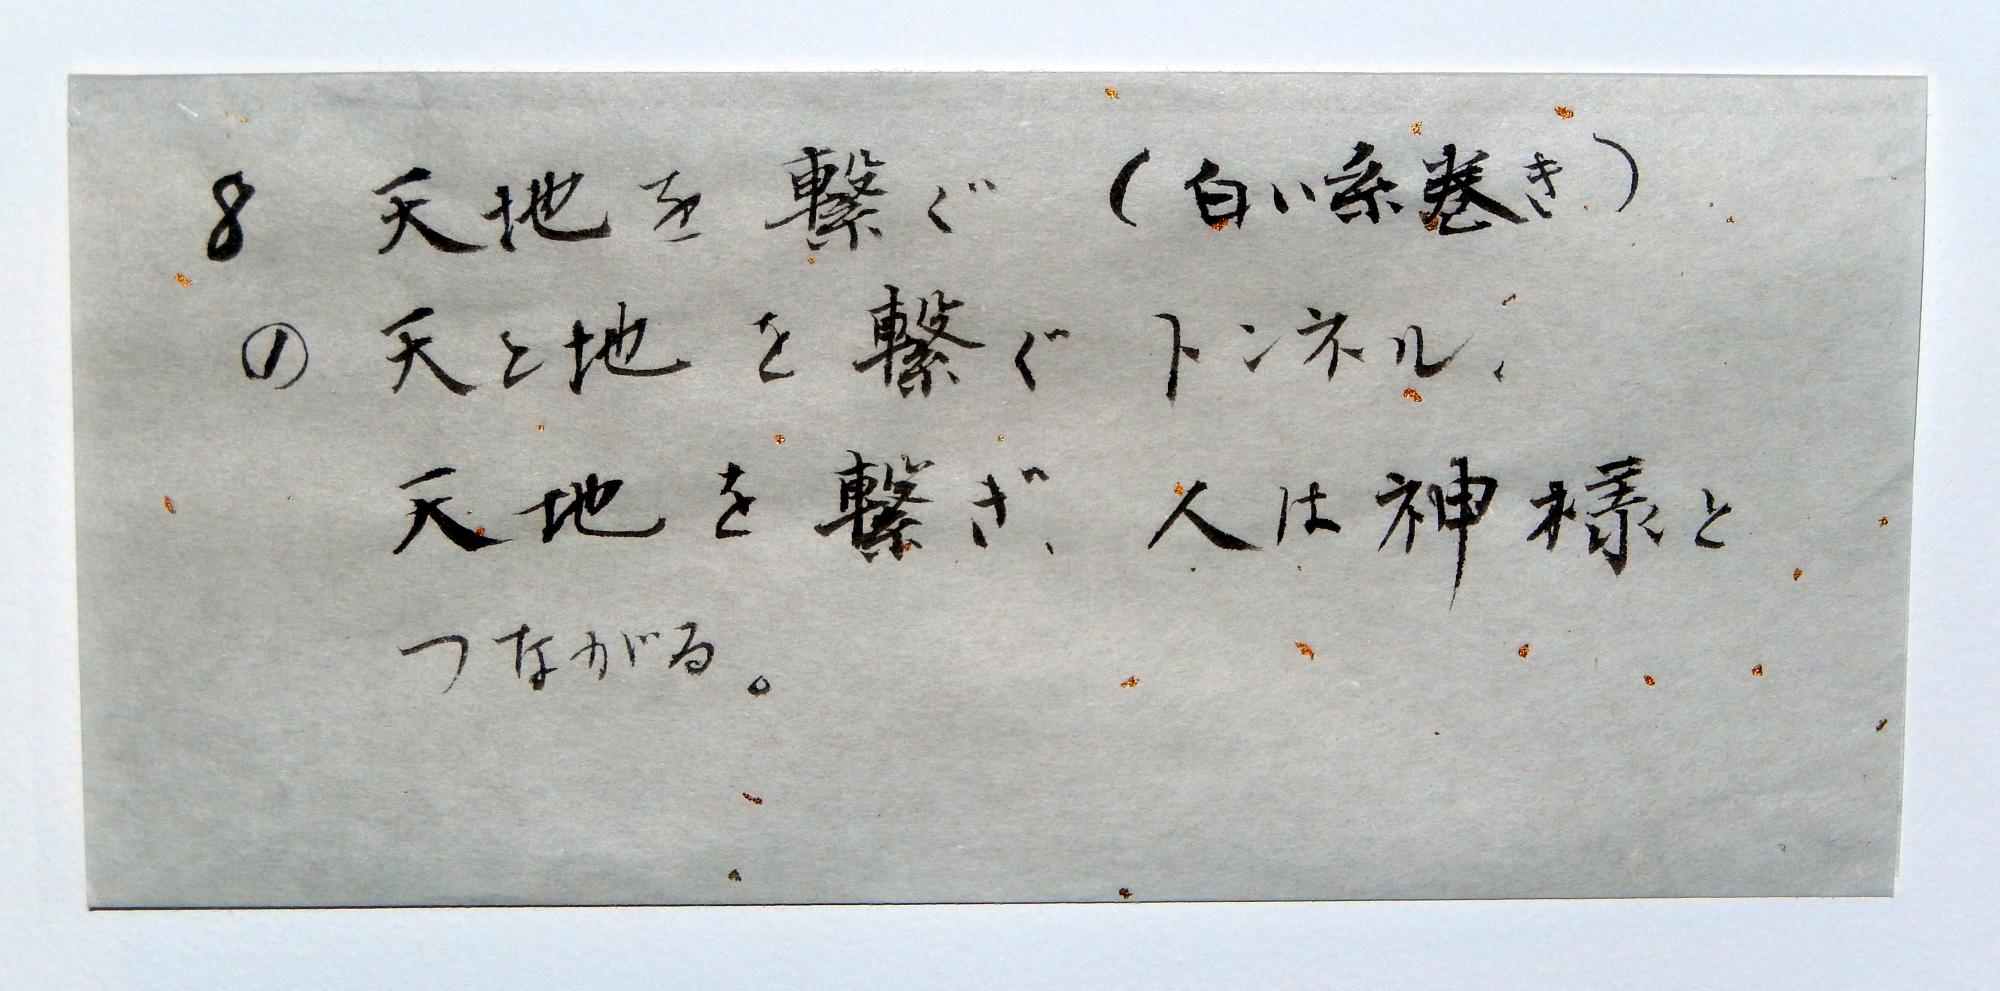 8 天地を繋ぐ (白い糸巻き)
① 天と地を繋ぐトンネル、
天地を繋ぎ、人は神様と
つながる。